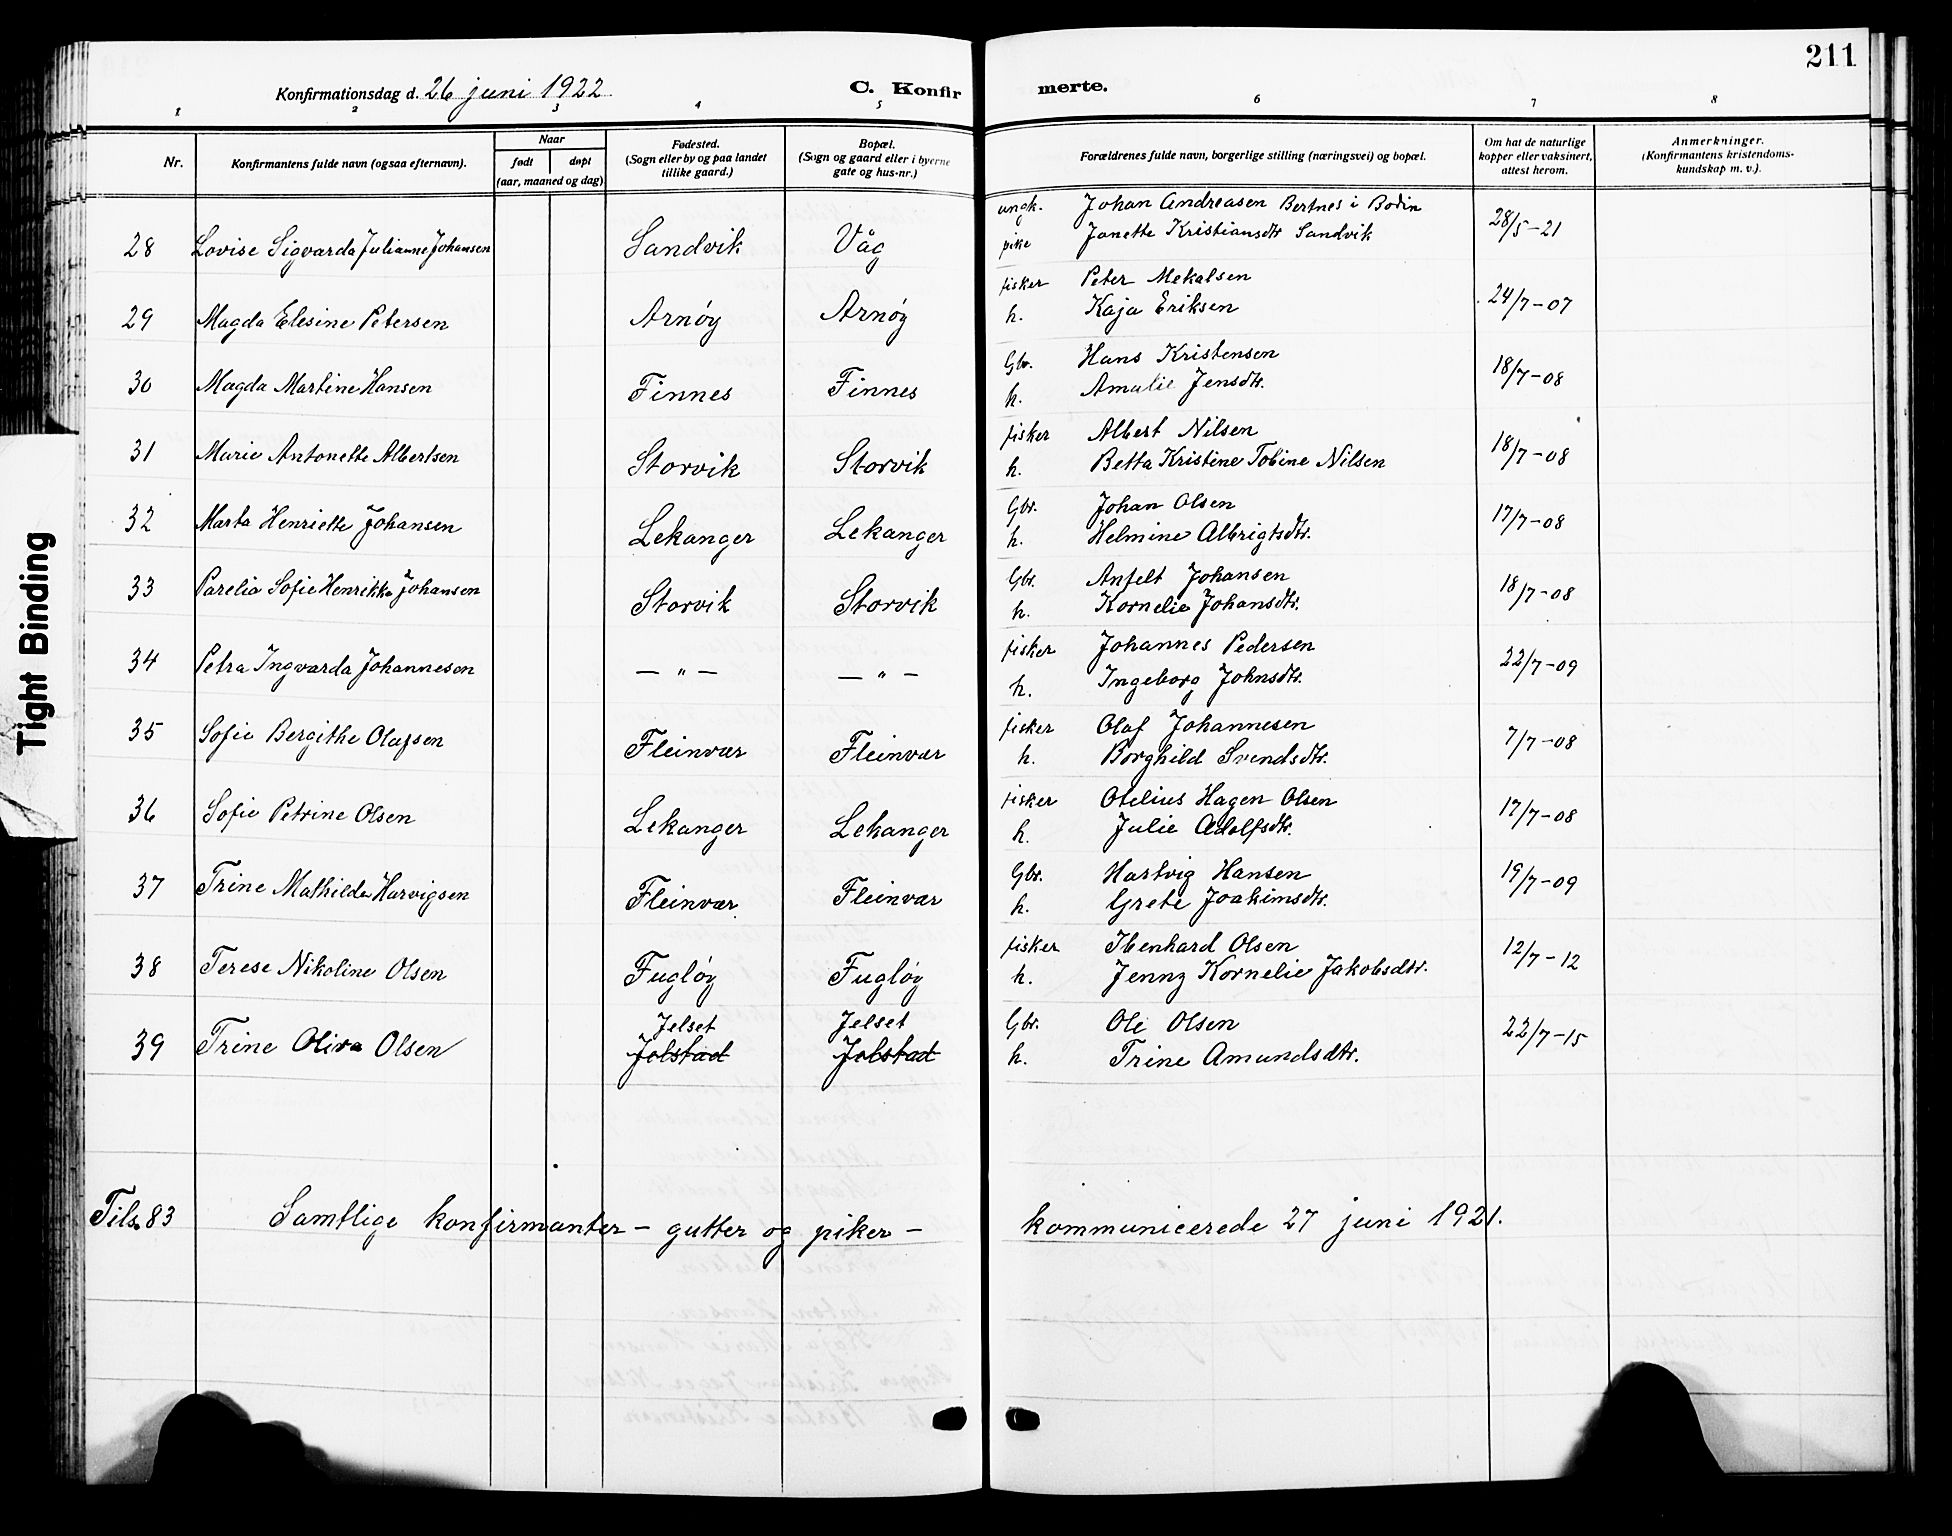 211
Konfirmationsdag d. 26 juni 1922
C. Konfirmerte.
1 2 3 4 5 6 7 8
Nr.
Konfirmantens fulde navn (ogsaa efternavn).
Naar
født døpt
(aar, maaned og dag)
Fødested.
(Sogn eller by og paa landet
tillike gaard.)
Bopæl.
(Sogn og gaard eller i byerne
gate og hus-nr.)
Forældrenes fulde navn, borgerlige stilling (næringsvei) og bopæl.
Om hat de naturlige
kopper eller vaksinert,
attest herom.
Anmerkninger.
(Konfirmantens kristendoms-
kundskap m. v.).
28 Lovise Sigvarda Julianne Johansen Sandvik Våg
ungk. Johan Andreasen Bertnes i Bodin
pike Janette Kristiansdtr Sandvik
28/5-21
29 Magda Elesine Petersen Arnöy Arnöy
fisker Peter Mekalsen
h. Kaja Eriksen
24/7-07
30 Magda Martine Hansen Finnes Finnes
Gbr. Hans Kristensen
h. Amalie Jensdtr.
18/7-08
31 Marie Antonette Albertsen Storvik Storvik
fisker Albert Nilsen
h. Betta Kristine Tobine Nilsen
18/7-08
32 Marta Henriette Johansen Lekanger Lekanger
Gbr. Johan Olsen
h. Helmine Albrigtsdtr.
17/7-08
33 Parelia Sofie Henrikke Johansen Storvik Storvik
Gbr. Anfelt Johansen
h. Kornelie Johansdtr.
18/7-08
34 Petra Ingvarda Johannesen — " — — " —
fisker Johannes Pedersen
h. Ingeborg Johnsdtr.
22/7-09
35 Sofie Bergithe Olafsen Fleinvær Fleinvær
fisker Olaf Johannesen
h. Borghild Svendsdtr.
7/7-08
36 Sofie Petrine Olsen Lekanger Lekanger
fisker Otelius Hagen Olsen
h. Julie Adolfsdtr.
17/7-08
37 Trine Mathilde Harvigsen Fleinvær Fleinvær
Gbr. Hartvig Hansen
h. Grete Joakimsdtr.
19/7-09
38 Terese Nikoline Olsen Fuglöy Fuglöy
fisker Ibenhard Olsen
h. Jenny Kornelie Jakobsdtr.
12/7-12
Jelset Jelset
39 Trine Oliva Olsen Jolstad Jolstad
Gbr. Ole Olsen
h. Trine Amundsdtr.
22/7-15
Tils. 83 Samtlige konfirmanter – gutter og piker – kommunicerede 27 juni 1921.
Tight Binding